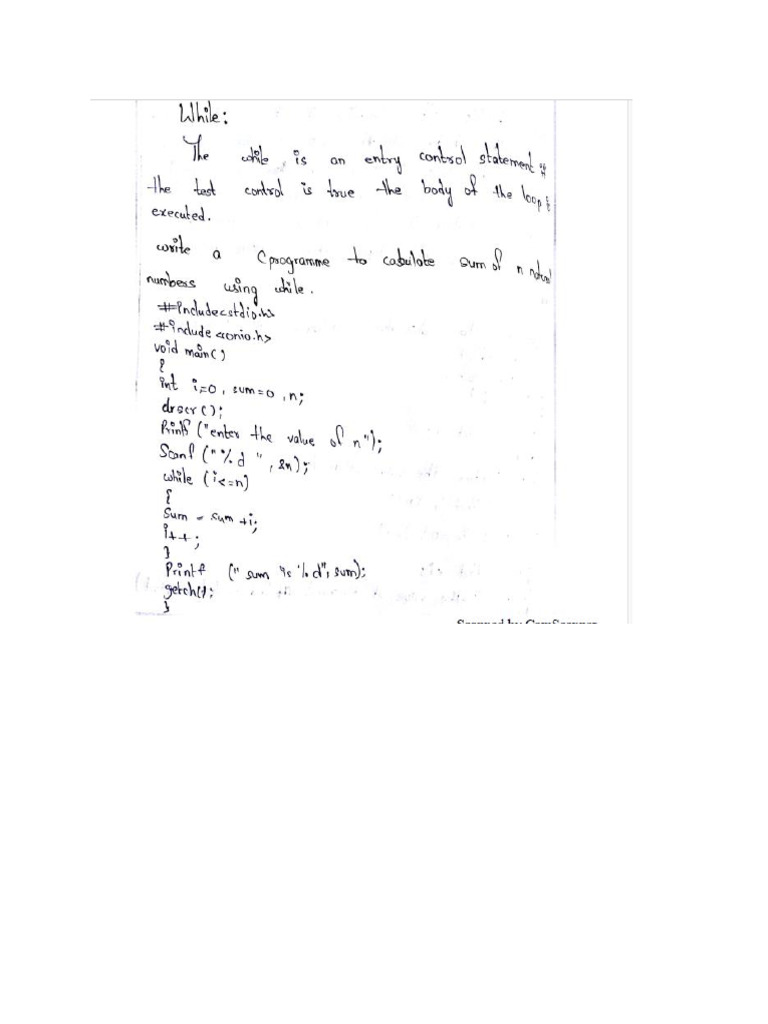 While:
The while is an entry control statement if
the test control is true the body of the loop is
executed.
write a C programme to calculate sum of n natural
numbers using while.
#include<stdio.h>
#include<conio.h>
void main()
{
int i=0, sum=0, n;
clrscr();
Printf ("enter the value of n");
Scanf ("%d ", &n);
while (i<=n)
{
Sum = sum +i;
i++;
}
Printf (" sum is %d", sum);
getch();
}